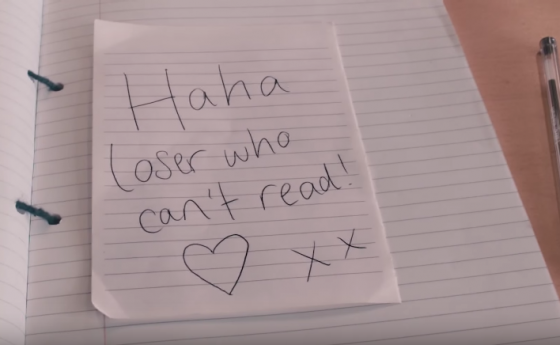 Haha
loser who
can't read!
♡ xx